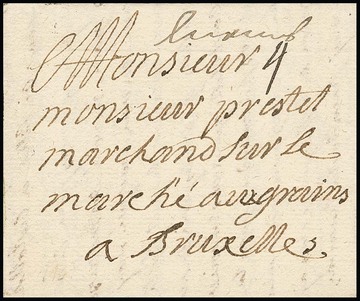 Monsieur 4
monsieur prestet
marchand sur le
marché au grains
a Bruxelles